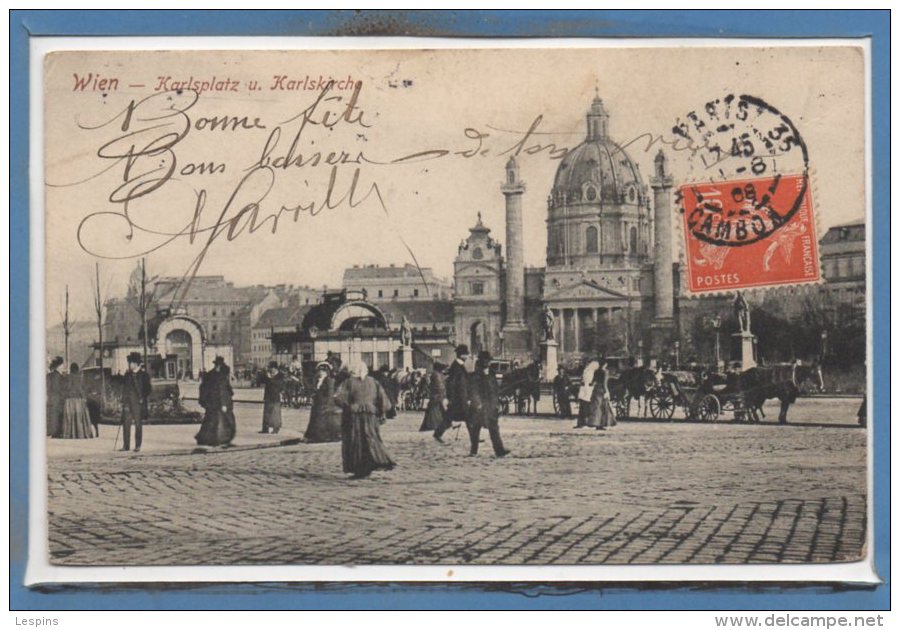 Wien — Karlsplatz u. Karlskirche
Bonne fête
Bons baisers de ton
PARIS 35
45
08
CAMBON
10
FRANÇAISE
POSTES
Lespins
www.delcampe.net